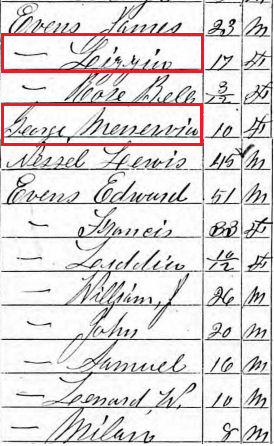 Evens James 23 M
— Lizzie 17 F
— Rose Bell 3/12 F
George, Menervia 10 F
Nessel Lewis 45 M
Evens Edward 51 M
— Francis 33 F
— Laddin 10/12 F
— William, J 26 M
— John 20 M
— Samuel 16 M
— Lenard W. 10 M
— Milan 8 M